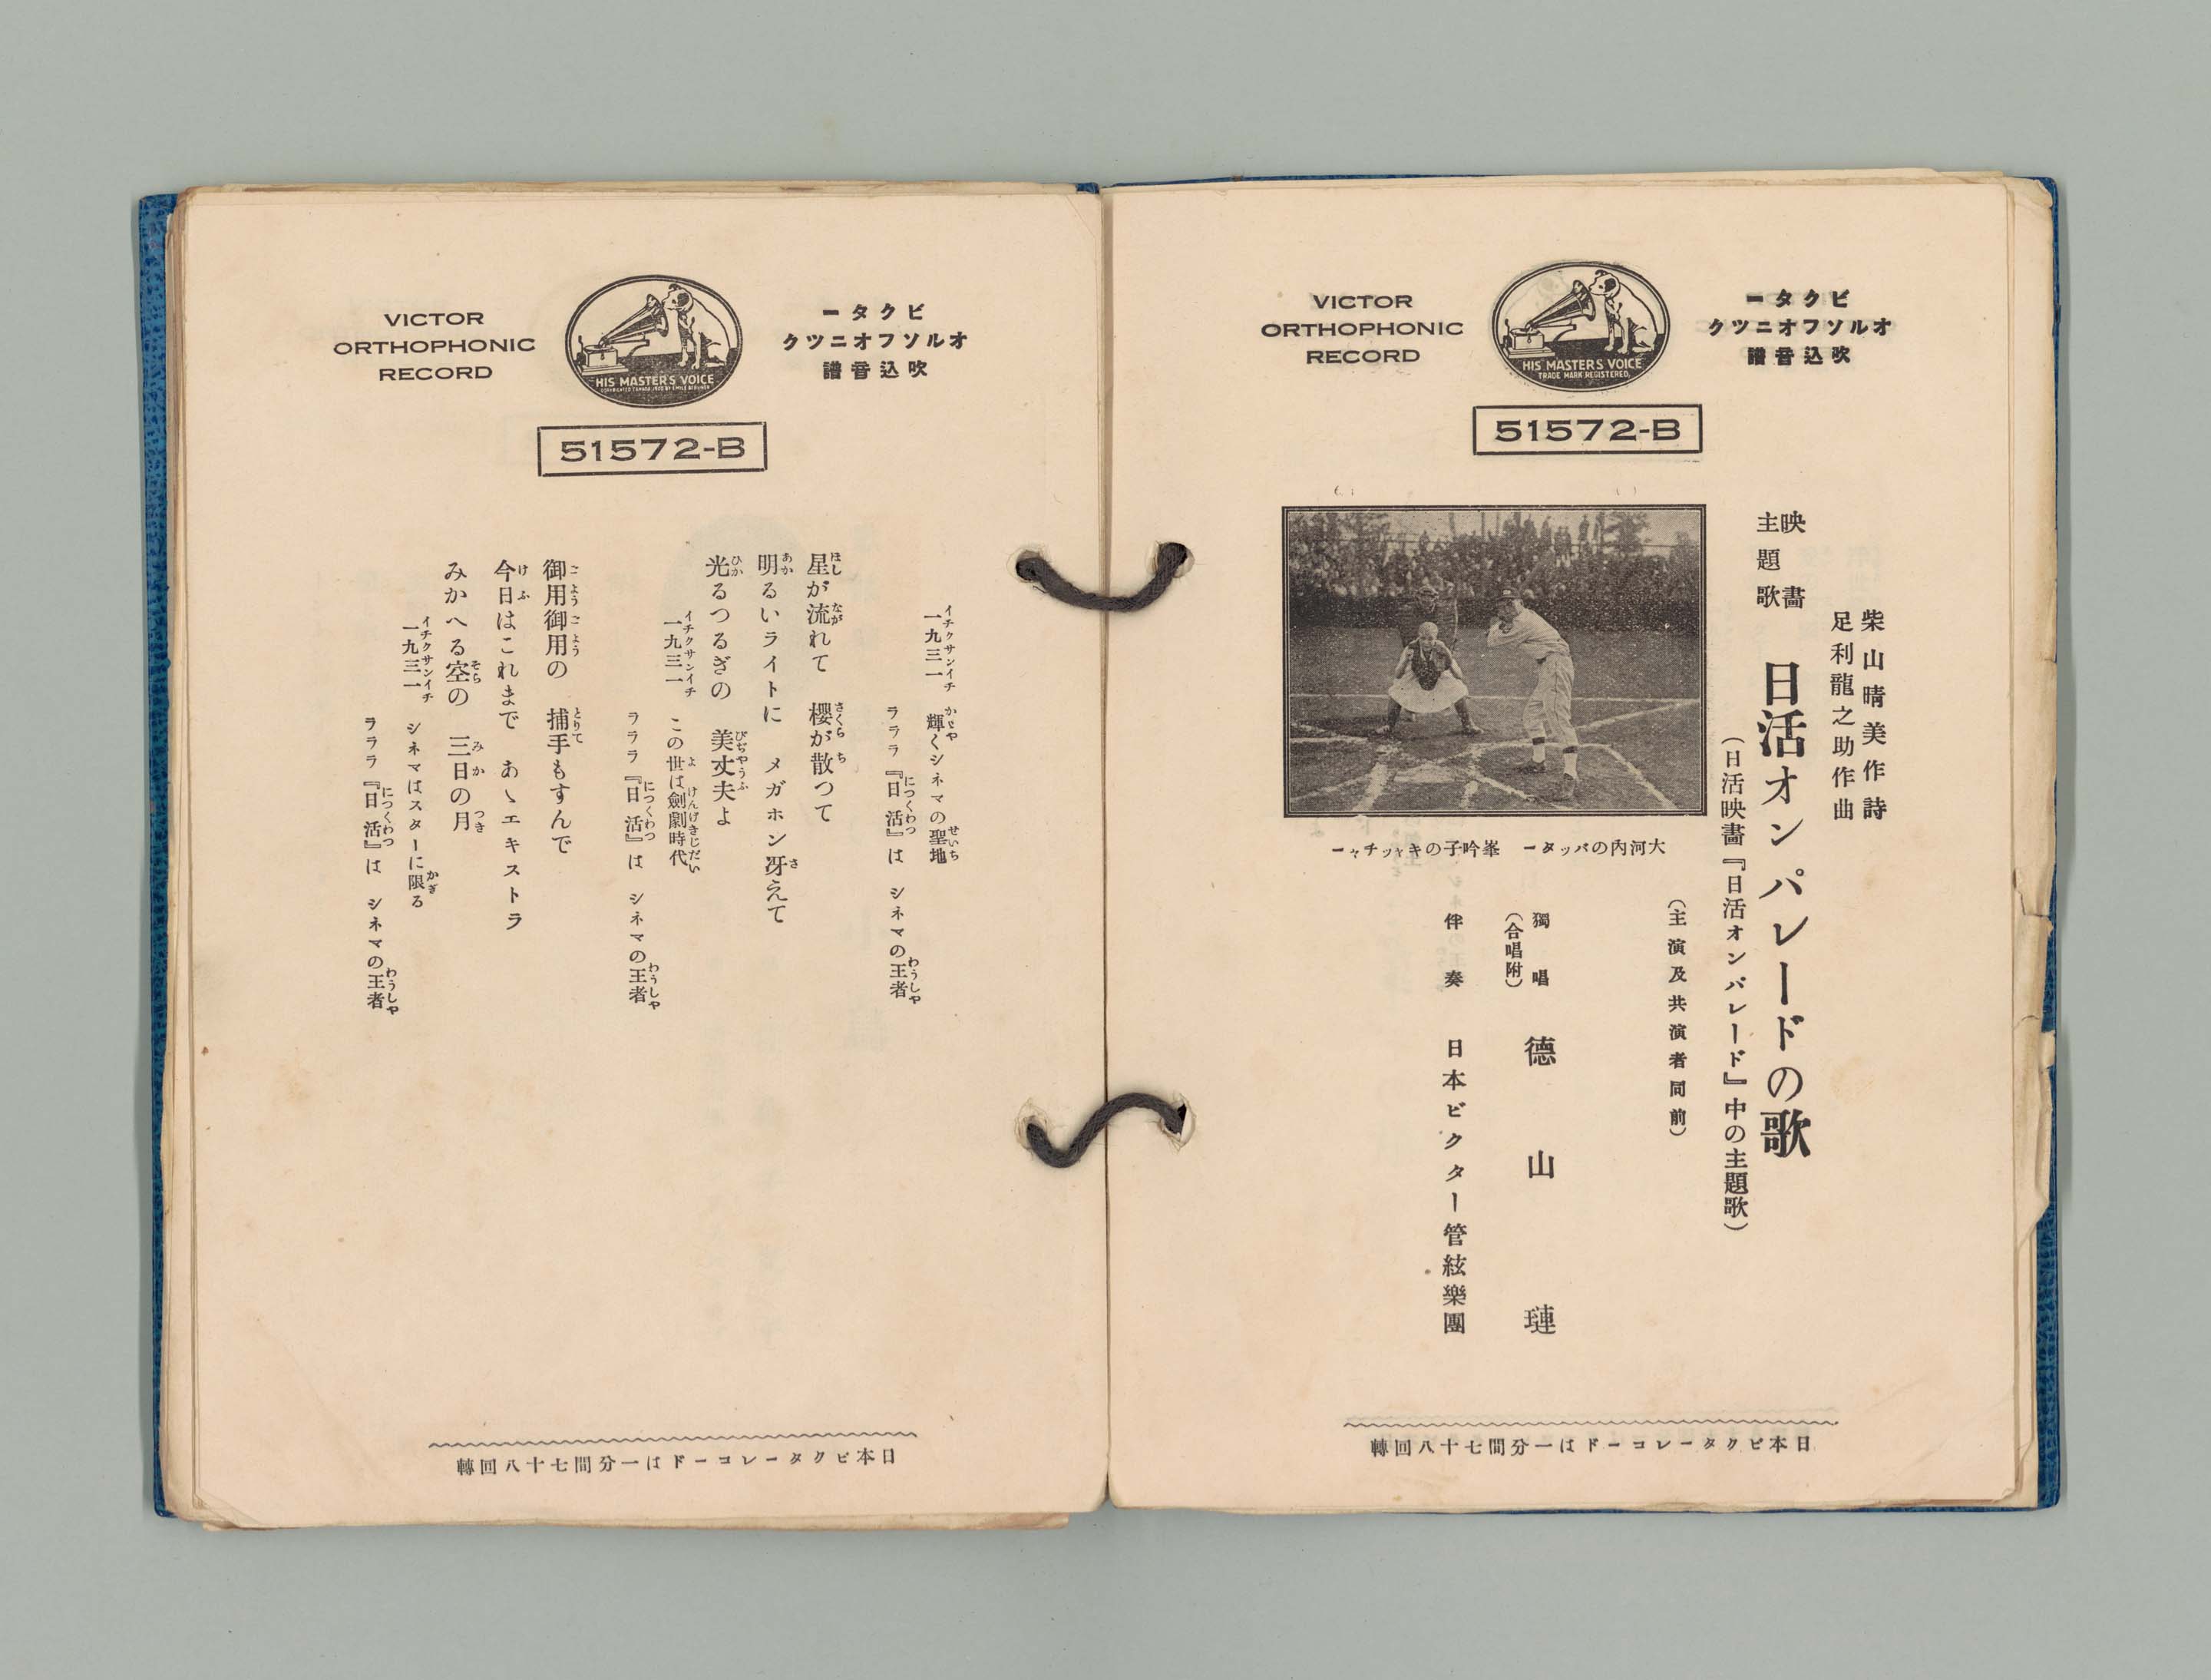 VICTOR
ORTHOPHONIC
RECORD
HIS MASTER'S VOICE
TRADE MARK REGISTERED.
ビクター
オルソフオニツク
吹込音譜
51572-B
柴山晴美作詩
足利龍之助作曲
映畫
主題歌
日活オンパレードの歌
(日活映畫『日活オンパレード』中の主題歌)
(主演及共演者同前)
大河内のバッター 峯吟子のキャッチャー
獨唱 德山璉
(合唱附)
伴奏 日本ビクター管絃樂團
日本ビクターレコードは一分間七十八回轉
VICTOR
ORTHOPHONIC
RECORD
HIS MASTER'S VOICE
ビクター
オルソフオニツク
吹込音譜
51572-B
一九三一 輝くシネマの聖地
ラララ『日活』は シネマの王者
星が流れて 櫻が散つて
明るいライトに メガホン冴えて
光るつるぎの 美丈夫よ
一九三一 この世は劍劇時代
ラララ『日活』は シネマの王者
御用御用の 捕手もすんで
今日はこれまで あゝエキストラ
みかへる空の 三日の月
一九三一 シネマはスターに限る
ラララ『日活』は シネマの王者
日本ビクターレコードは一分間七十八回轉